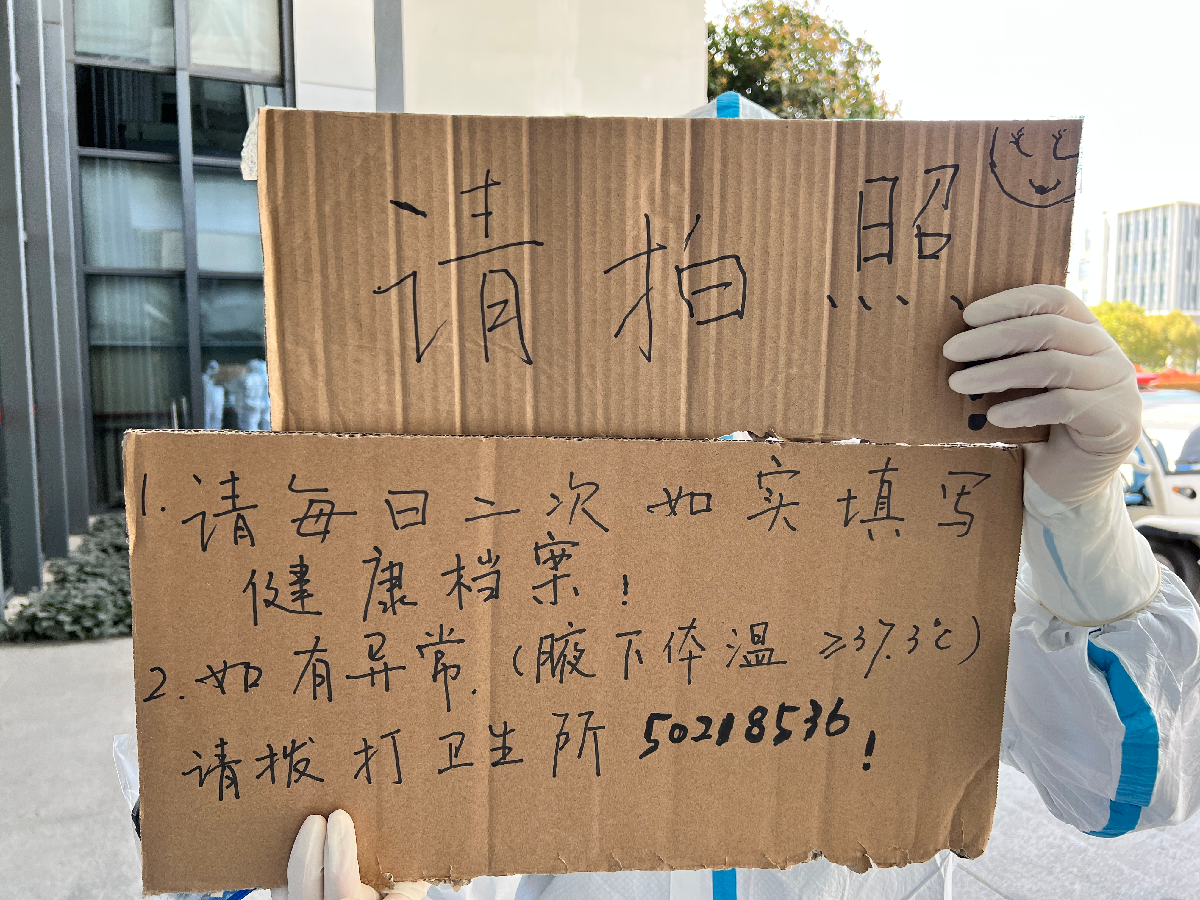 请拍照
1.请每日二次如实填写
健康档案!
2.如有异常.(腋下体温≥37.3℃)
请拨打卫生所50218536!